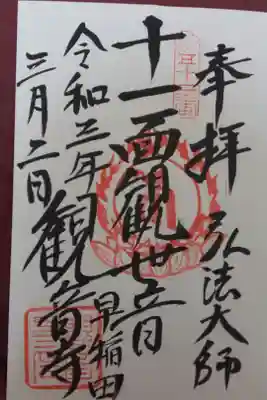 奉拝 弘法大師
十一面観世音
早稲田
観音寺
令和三年
三月二日